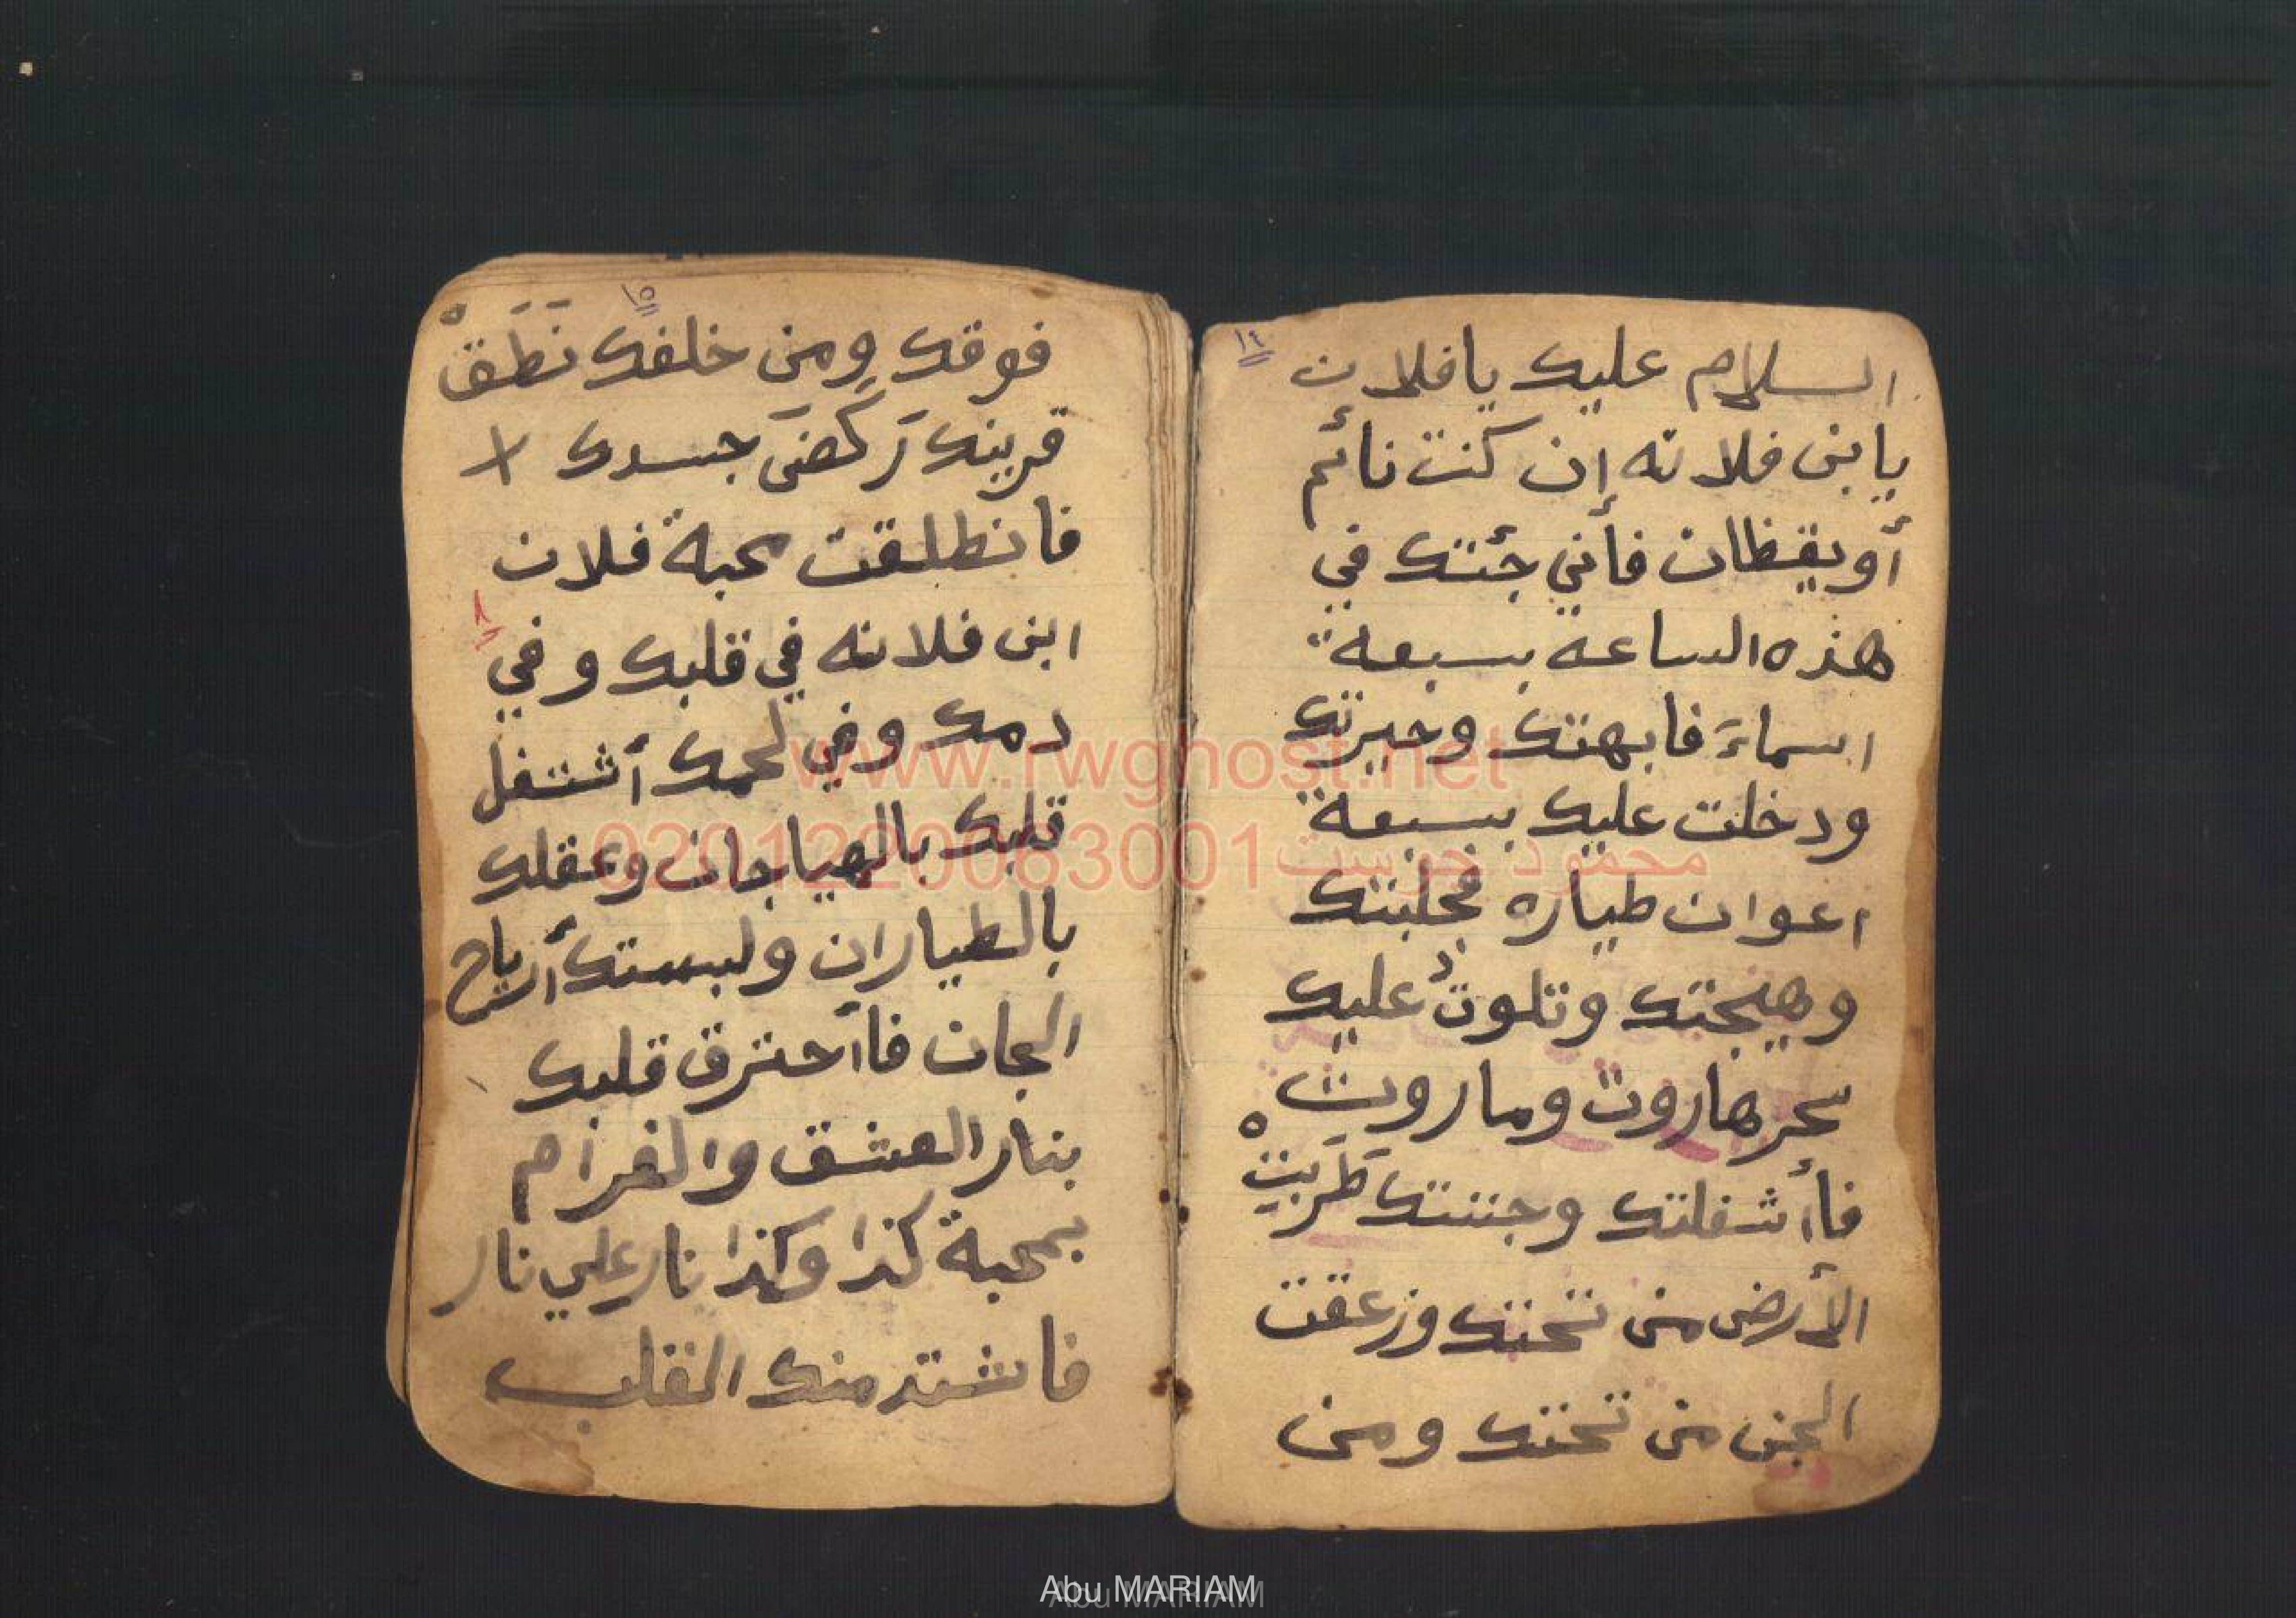 ١٤
السلام عليك يا فلان
يابن فلانه إن كنت نائم
أو يقظان فأني جئتك في
هذه الساعة بسبعة
اسماءَ فابهتك وحيرتك
ودخلت عليك بسبعة
اعوان طياره فجلبتك
وهيجتك وتلوتُ عليك
سحر هاروت وماروت
فاأشغلتك وجننتك ضربت
الأرض من تحتك وزعقت
الجن من تحتك ومن
١٥
فوقك ومن خلفك نَطَقْ
قرينك رَكضَ جسدك
فانطلقت محبة فلان
ابن فلانه في قلبك وفي
دمك وفي لحمك أشتغل
قلبك بالهياجان وعقلك
بالطياران ولبستك أرياح
الجان فاأحترق قلبك
بنار العشق والغرام
بمحبة كذا وكذا نار علي نار
فاشتد منك القلب
www.rwghost.net
محمود جوست 0201220063001
Abu MARIAM